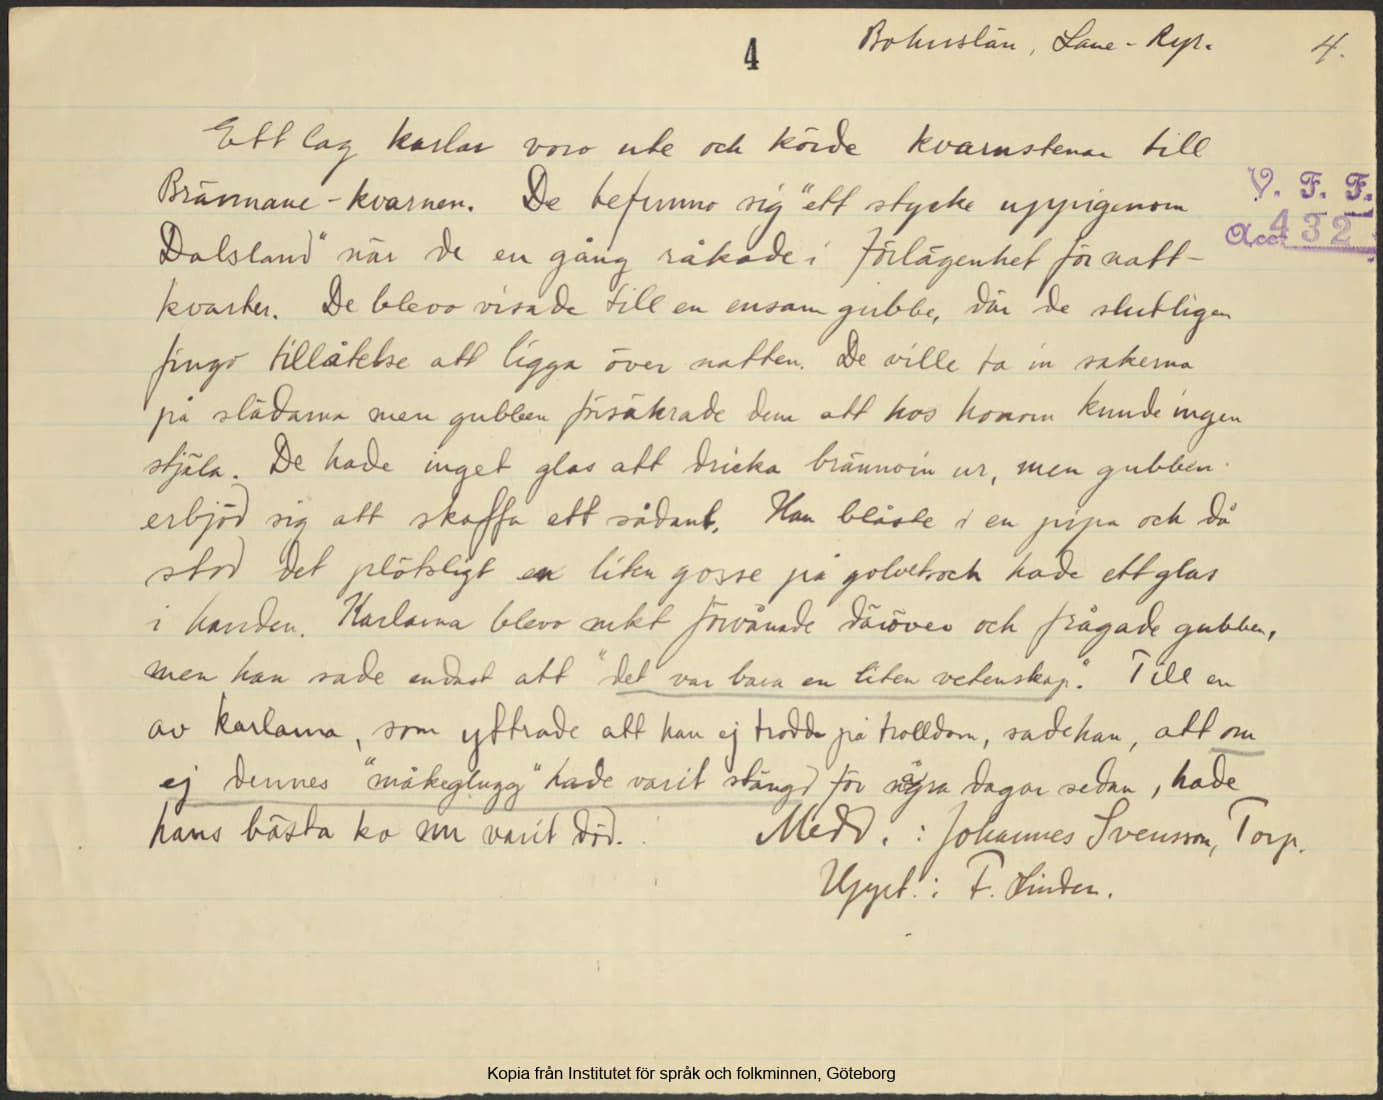 4
Bohuslän, Lane-Ryr. 4.
Ett lag karlar voro ute och körde kvarnstenar till
V. F. F.
-kvarnen. De befunno sig "ett stycke uppigenom
Acc. 432
Dalsland" när de en gång råkade i förlägenhet för natt-
kvarter. De blevo visade till en ensam gubbe, där de slutligen
fingo tillåtelse att ligga över natten. De ville ta in sakerna
på slädarna men gubben försäkrade dem att hos honom kunde ingen
stjäla. De hade inget glas att dricka brännvin ur, men gubben
erbjöd sig att skaffa ett sådant. Han blåste i en pipa och då
stod det plötsligt en liten gosse på golvet och hade ett glas
i handen. Karlarna blevo mkt förvånade däröver och frågade gubben,
men han sade endast att "det var bara en liten vetenskap". Till en
av karlarna, som yttrade att han ej trodde på trolldom, sade han, att om
ej dennes "måkeglugg" hade varit stängd för några dagar sedan, hade
hans bästa ko nu varit död. Medd. : Johannes Svensson, Torp.
Uppt. : F. Linden.
Kopia från Institutet för språk och folkminnen, Göteborg